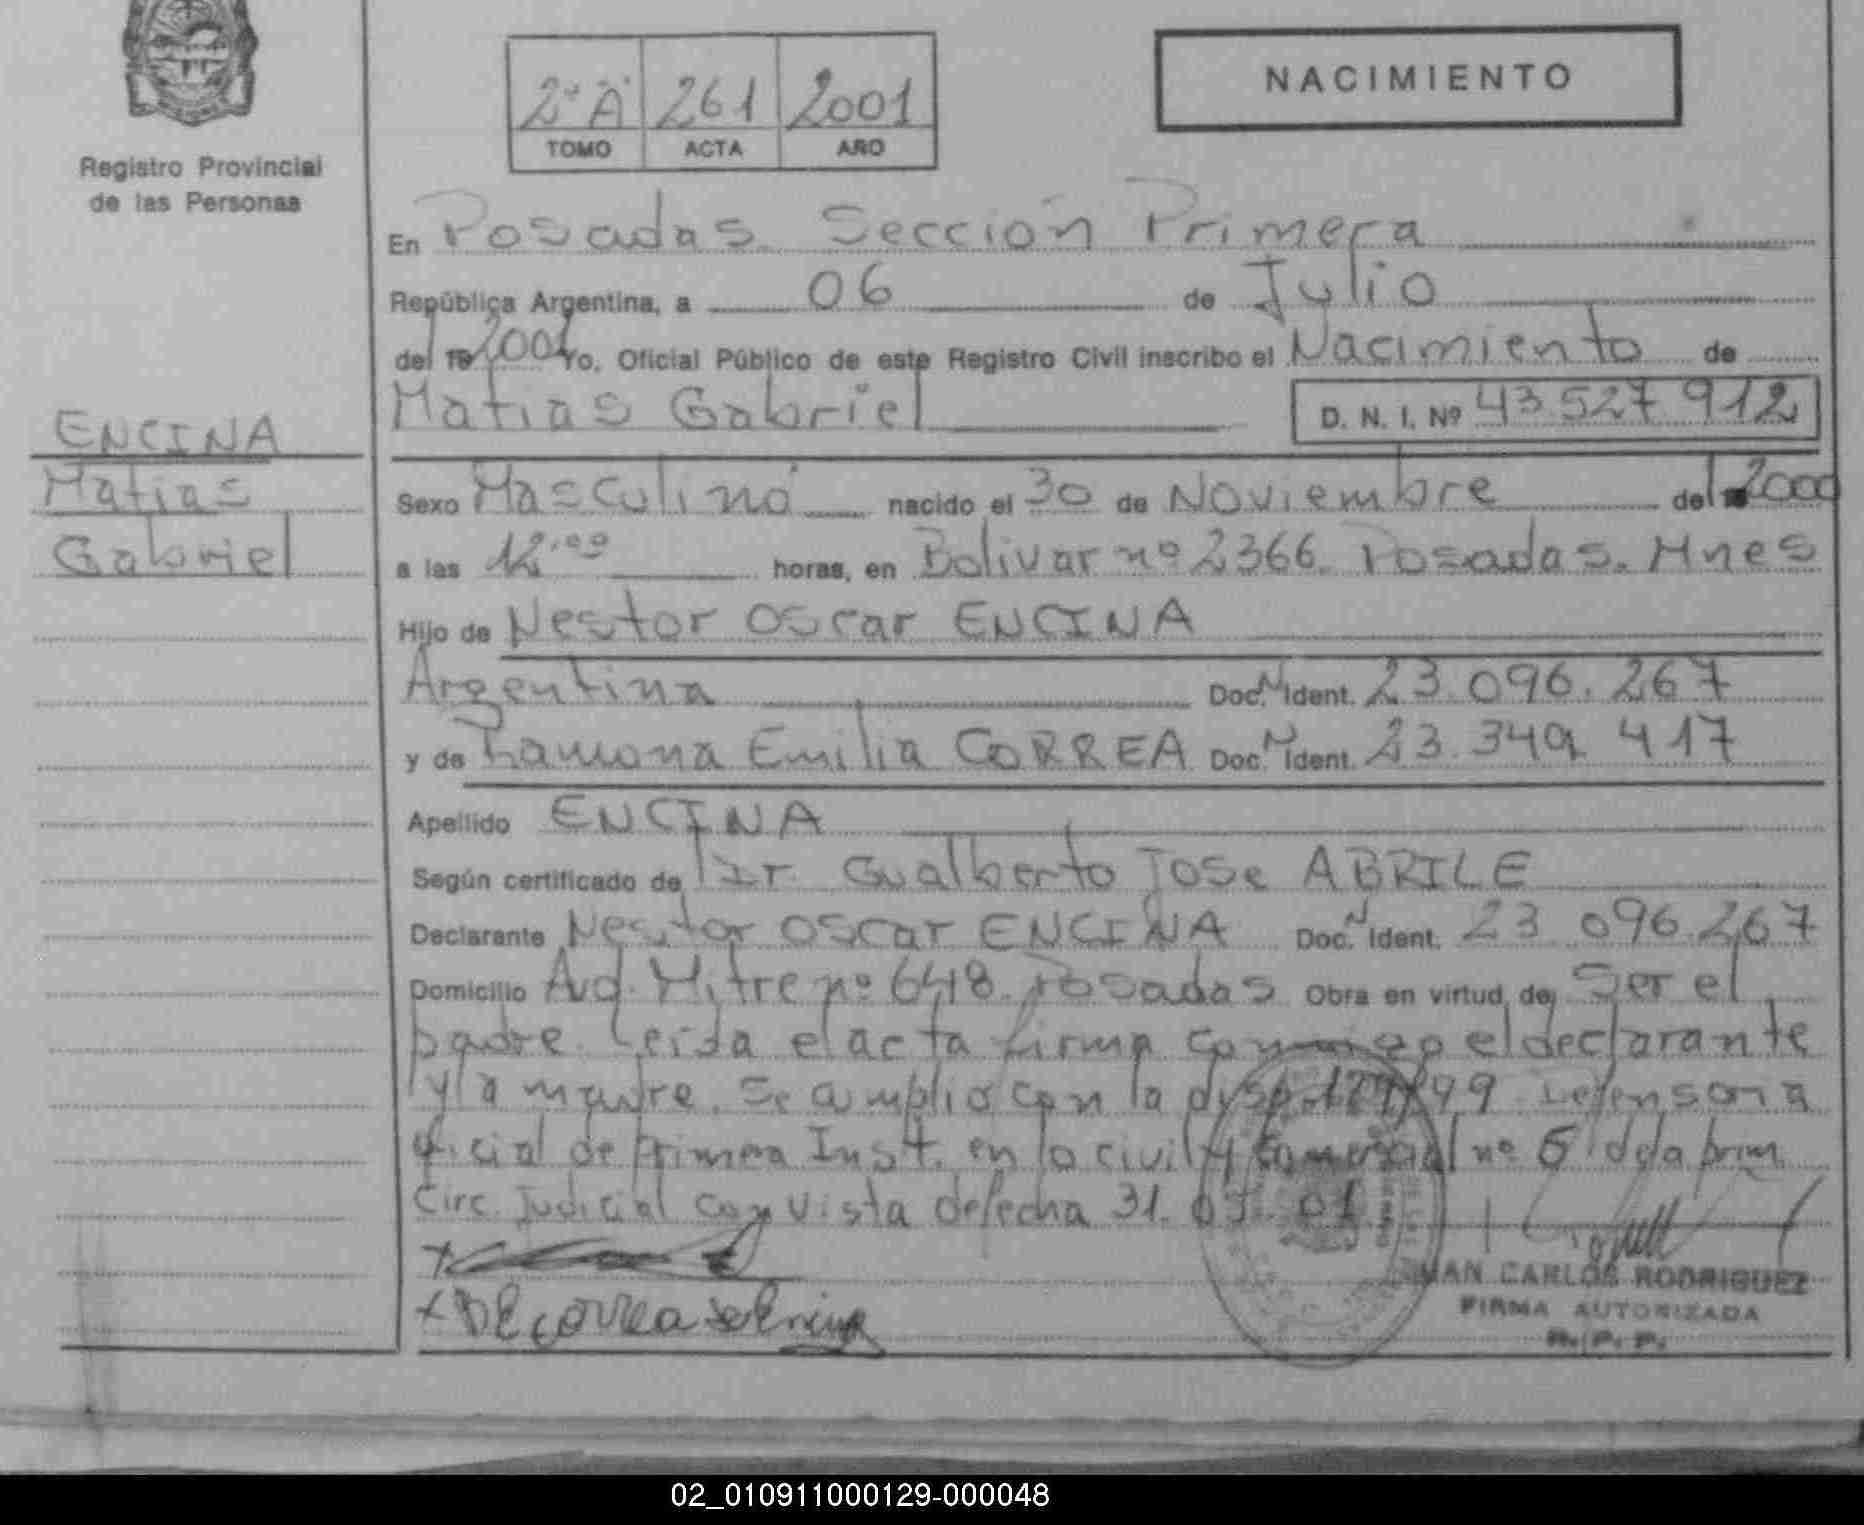 Registro Provincial
de las Personas
2º "A" 261 2001
TOMO ACTA AÑO
NACIMIENTO
En Posadas Sección Primera
República Argentina, a 06 de Julio
del 19 2001 Yo, Oficial Público de este Registro Civil inscribo el Nacimiento de
Matias Gabriel D. N. I. Nº 43.527.912
ENCINA
Matias
Gabriel
Sexo Masculino nacido el 30 de Noviembre del 2000
a las 12.00 horas, en Bolivar nº 2366. Posadas. Mnes
Hijo de Nestor Oscar ENCINA
Argentina Doc. N Ident. 23.096.267
y de Ramona Emilia CORREA Doc. N Ident. 23.349.417
Apellido ENCINA
Según certificado de Dr Gualberto Jose ABRILE
Declarante Nestor Oscar ENCINA Doc. N Ident. 23.096.267
Domicilio Avd. Mitre nº 648. Posadas Obra en virtud de ser el
padre. Leida el acta firma conmigo el declarante
y la madre. Se cumplio con la disp. /99 Defensoria
Oficial de Primera Inst. en lo civil y Comercial nº 5 de la prim
Circ. Judicial con vista de fecha 31. 01
JUAN CARLOS RODRIGUEZ
FIRMA AUTORIZADA
R. P. P.
02_010911000129-000048